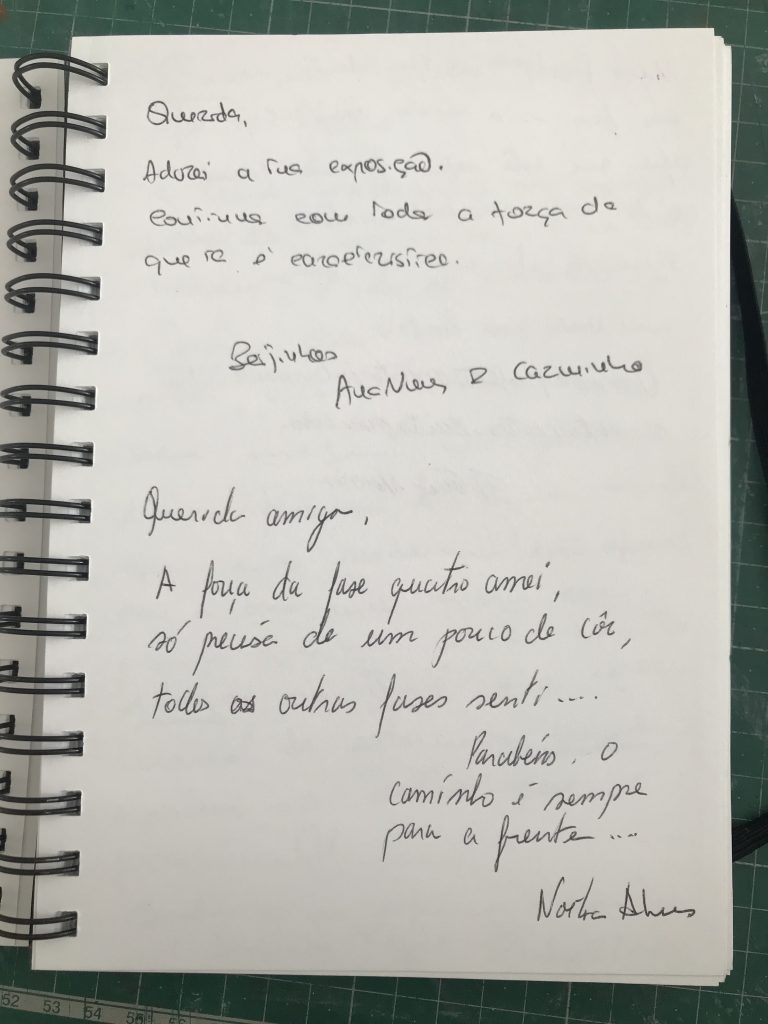 Querida,
Adorei a tua exposição.
Continua com toda a força da
que te é característica.
Beijinhos
Ana Neves e Carminho
Querida amiga,
A força da fase quatro amei,
só precisa de um pouco de côr,
todas as outras fases senti....
Parabéns. O
caminho é sempre
para a frente....
Alves
52 53 54 55 56